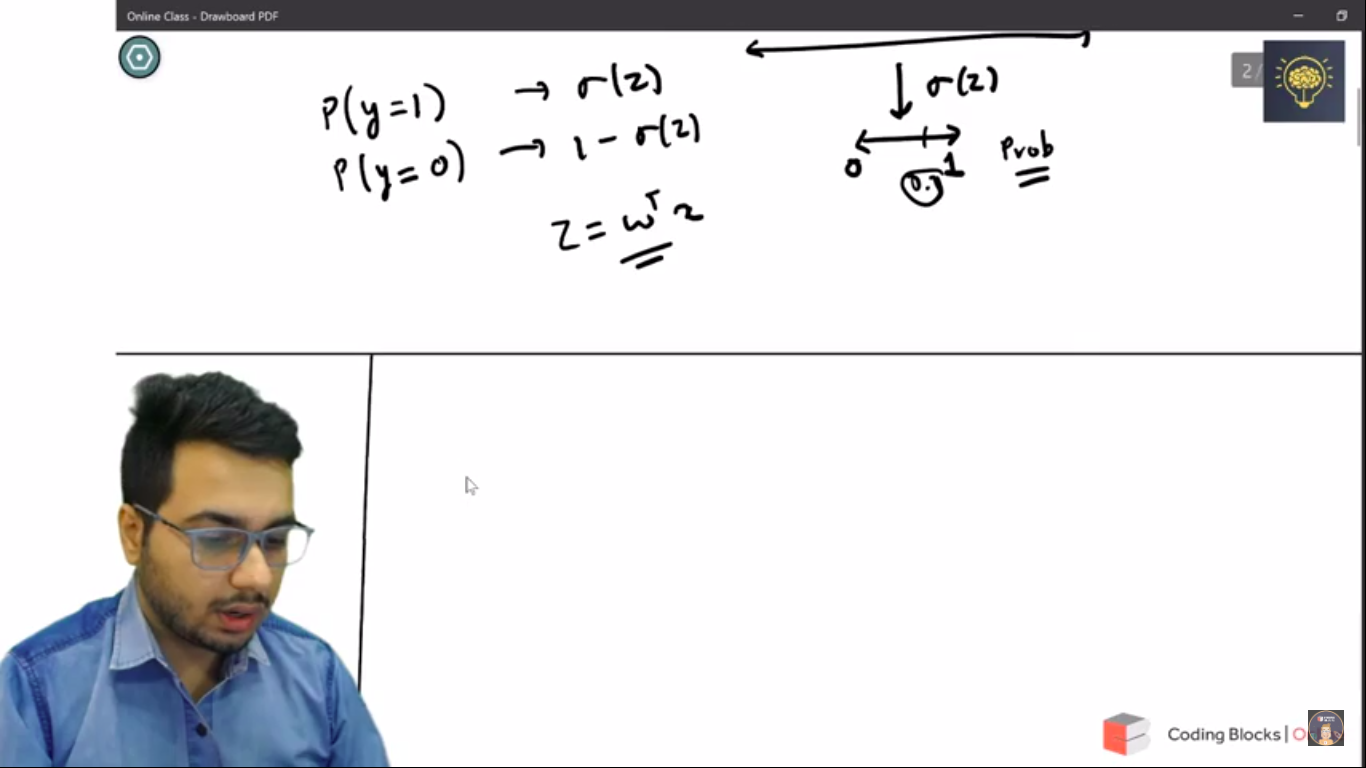 Online Class - Drawboard PDF
2/
P(y=1) → σ(z)
P(y=0) → 1 - σ(z)
z = wᵀx
σ(z)
0 1 Prob
Coding Blocks | O